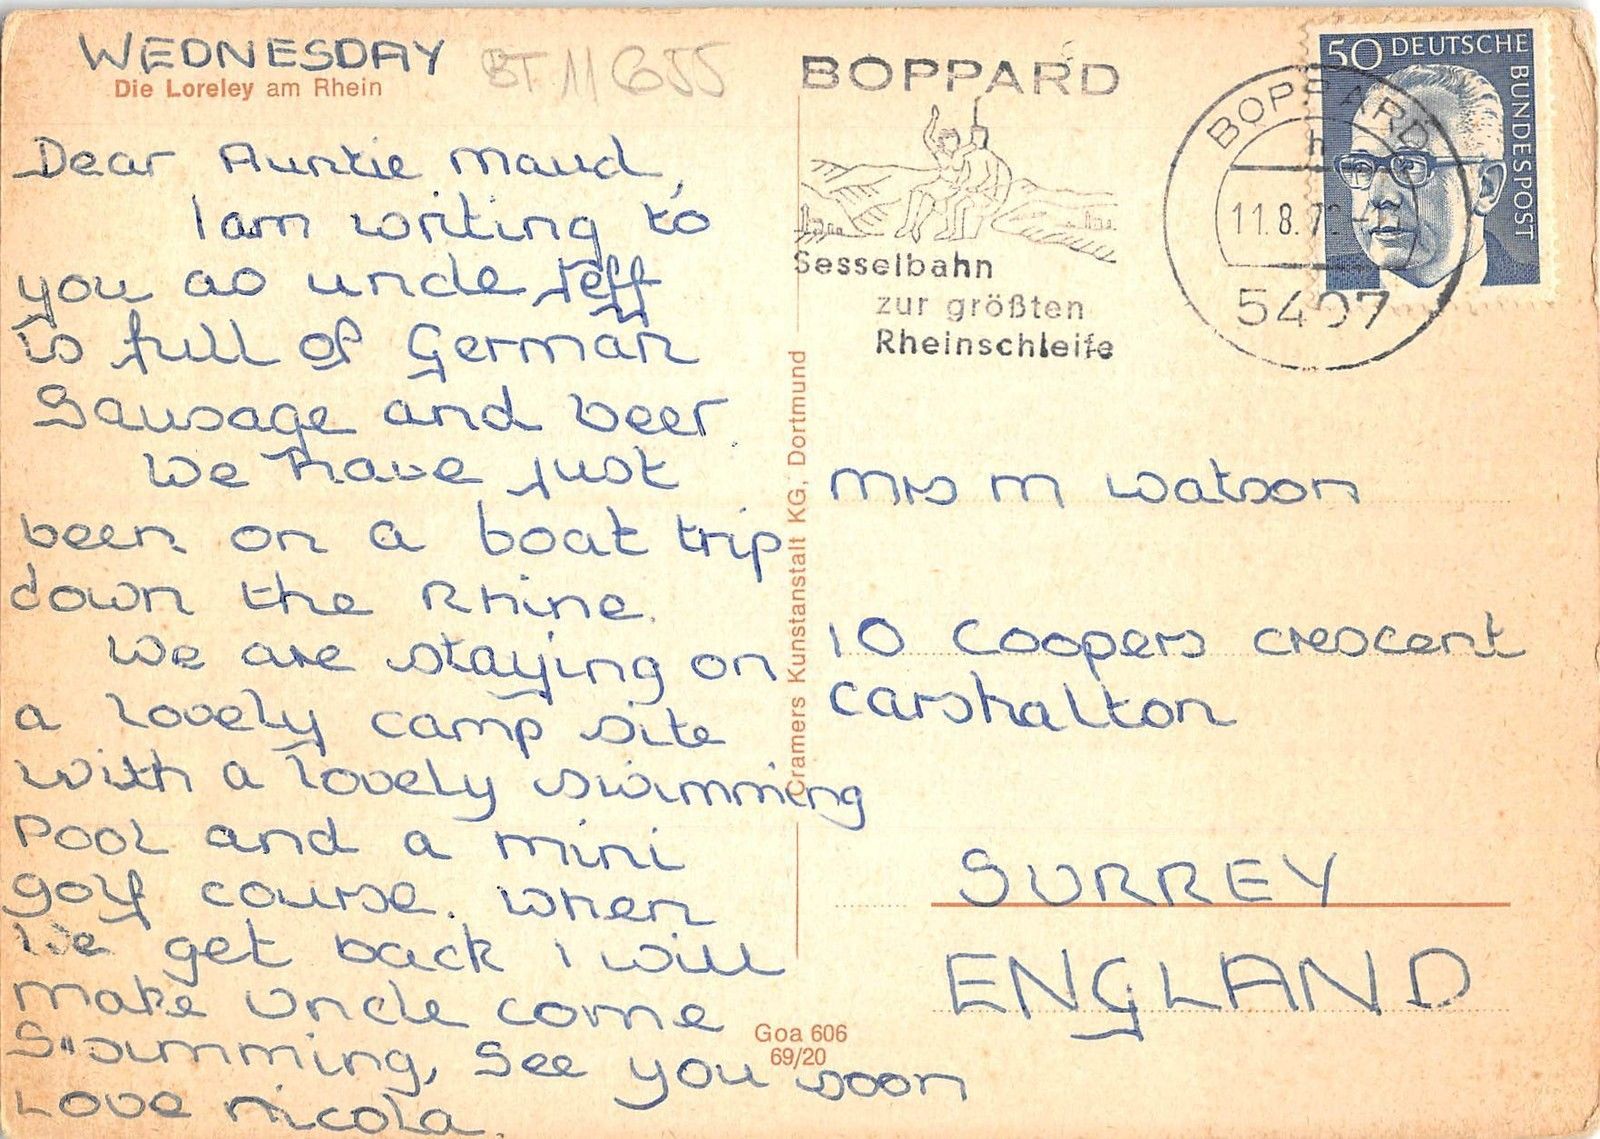 WEDNESDAY
Die Loreley am Rhein
BT 11655
Dear Auntie Maud,
I am writing to
you as uncle Jeff
is full of German
Sausage and beer.
We have just
been on a boat trip
down the Rhine.
We are staying on
a lovely camp site
with a lovely swimming
Pool and a mini
golf course. when
we get back I will
make Uncle come
Swimming, See you soon
Love Nicola.
BOPPARD
Sesselbahn
zur größten
Rheinschleife
BOPPARD
h
11.8.7
5407
50 DEUTSCHE
BUNDESPOST
Cramers Kunstanstalt KG, Dortmund
Mrs M Watson
10 Coopers crescent
Carshalton
SURREY
ENGLAND
Goa 606
69/20